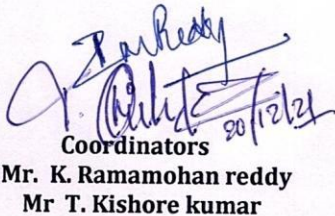 20/12/21
Coordinators
Mr. K. Ramamohan reddy
Mr T. Kishore kumar